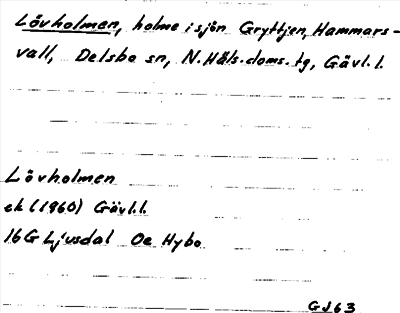 Lövholmen, holme i sjön Gryttjen, Hammars-
vall, Delsbo sn, N. Häls. doms. tg, Gävl. l.
Lövholmen
ek (1960) Gävl. l.
16G Ljusdal Oe Hybo
GJ63